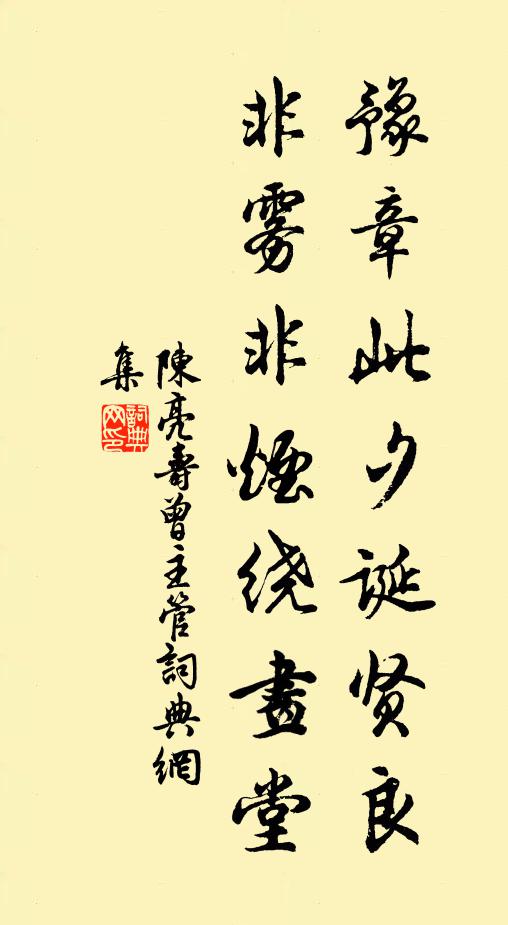 豫章此夕诞贤良
非雾非烟绕畫堂
陳亮壽曾主管詞典網
集
詞典网印